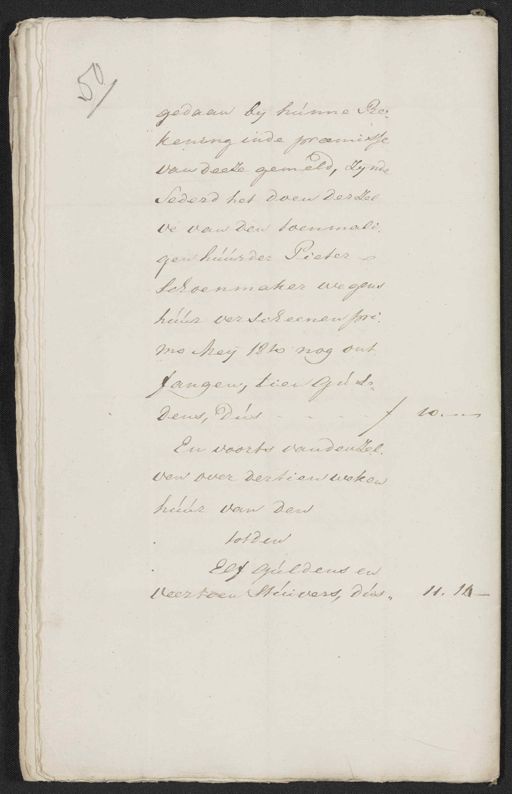 50/
gedaan by húnne Re-
kening inde præmisse
van deeze gemeld, zynde
Sederd het doen derzel
ve van den toenmali-
gen húúrder Pieter
Schoenmaker wegens
húúr verscheenen pri-
mo Meij 1810 nog ont
fangen, tien Gúl-
dens, Dús - - - - f 10.—
En voorts vandenzel-
ven over dertien weken
húúr van den
totden
Elf Gúldens en
veertien Stúivers, dús „ 11.14—